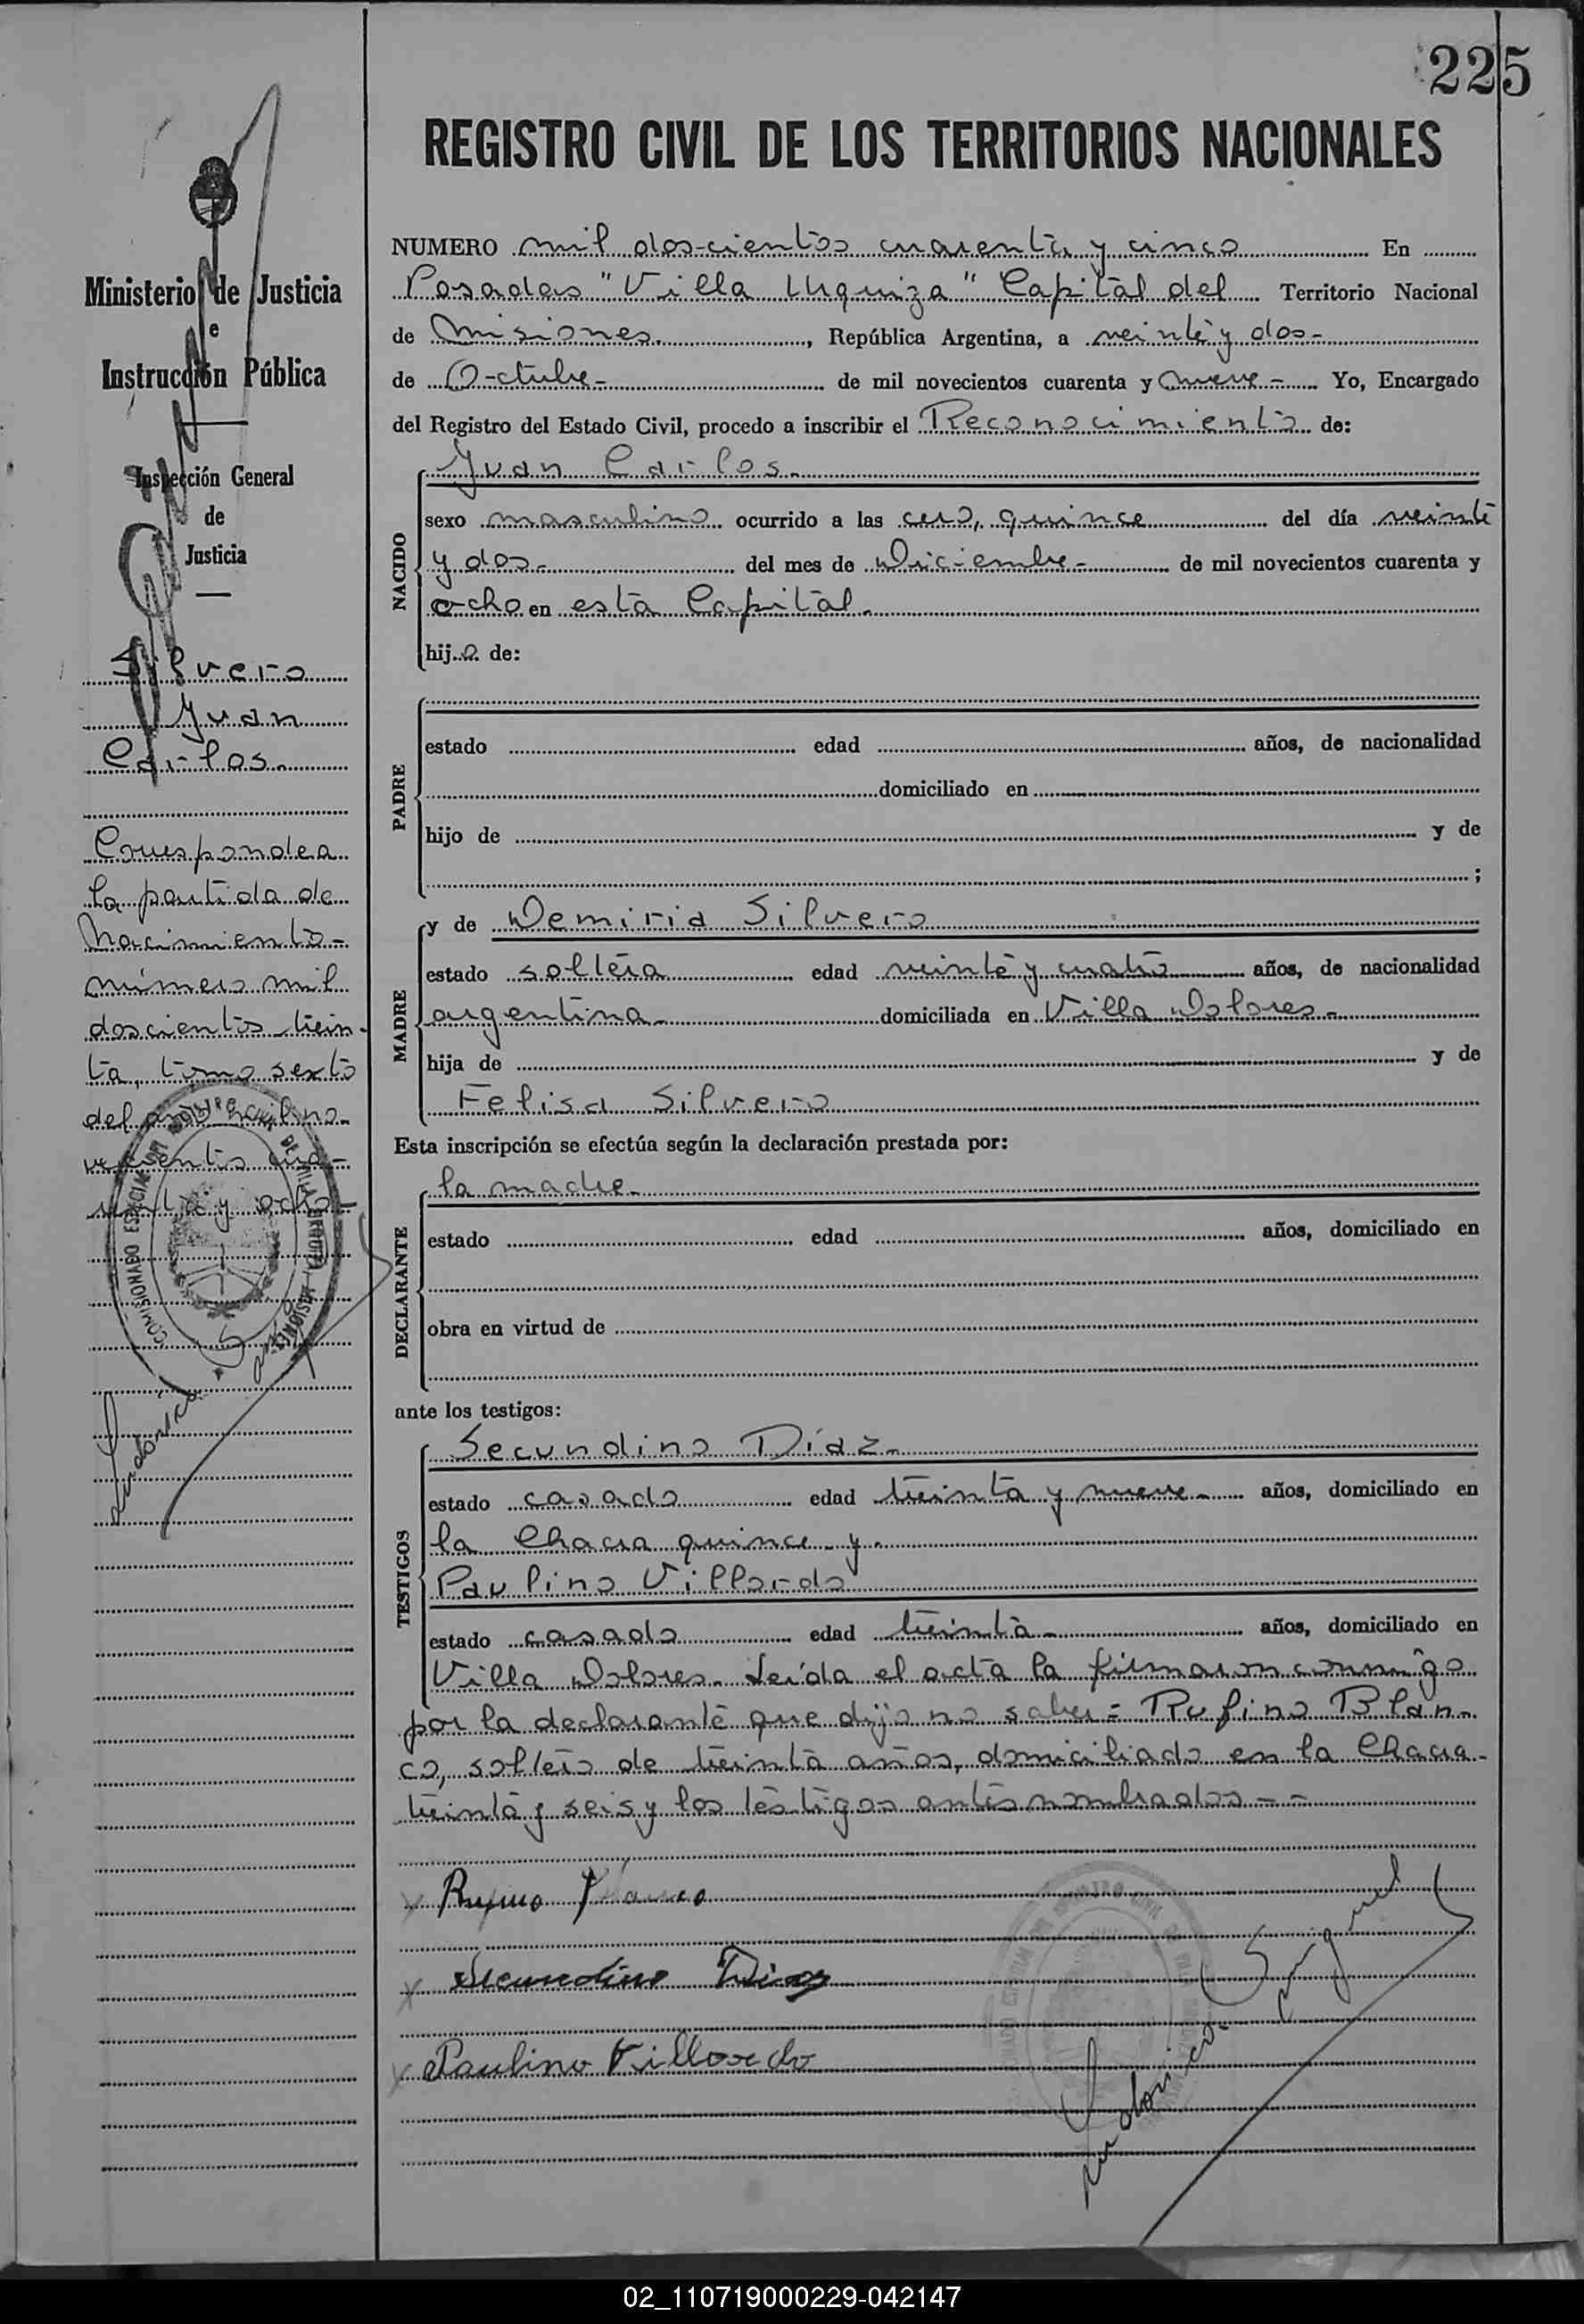 225
REGISTRO CIVIL DE LOS TERRITORIOS NACIONALES
Ministerio de Justicia
e
Instrucción Pública
Inspección General
de
Justicia
Silvero
Juan
Carlos.
Corresponde a
la partida de
Nacimiento-
número mil
doscientos trein-
ta, tomo sexto
del año mil no-
vecientos cua-
renta y ocho-
NUMERO mil dos-cientos cuarenta y cinco En
Posadas "Villa Urquiza" Capital del Territorio Nacional
de Misiones. , República Argentina, a veinte y dos-
de Octubre- de mil novecientos cuarenta y nueve- Yo, Encargado
del Registro del Estado Civil, procedo a inscribir el Reconocimiento de:
NACIDO
Juan Carlos.
sexo masculino ocurrido a las cero, quince del día veinte
y dos- del mes de Diciembre- de mil novecientos cuarenta y
ocho en esta Capital.
hijo de:
PADRE
estado edad años, de nacionalidad
domiciliado en
hijo de y de
;
MADRE
y de Demiria Silvero
estado soltera edad veinte y cuatro años, de nacionalidad
argentina- domiciliada en Villa Dolores-
hija de y de
Felisa Silvero
Esta inscripción se efectúa según la declaración prestada por:
DECLARANTE
la madre-
estado edad años, domiciliado en
obra en virtud de
ante los testigos:
TESTIGOS
Secundino Díaz-
estado casado edad treinta y nueve- años, domiciliado en
la Chacra quince y.
Paulino Villordo
estado casado edad treinta- años, domiciliado en
Villa Dolores. Leída el acta la firmaron conmigo
por la declarante que dijo no saber = Rufino Blan-
co, soltero de treinta años, domiciliado en la Chacra-
treinta y seis y los testigos antes nombrados--
Rufino Blanco
Secundino Diaz
Paulino Villordo
02_110719000229-042147